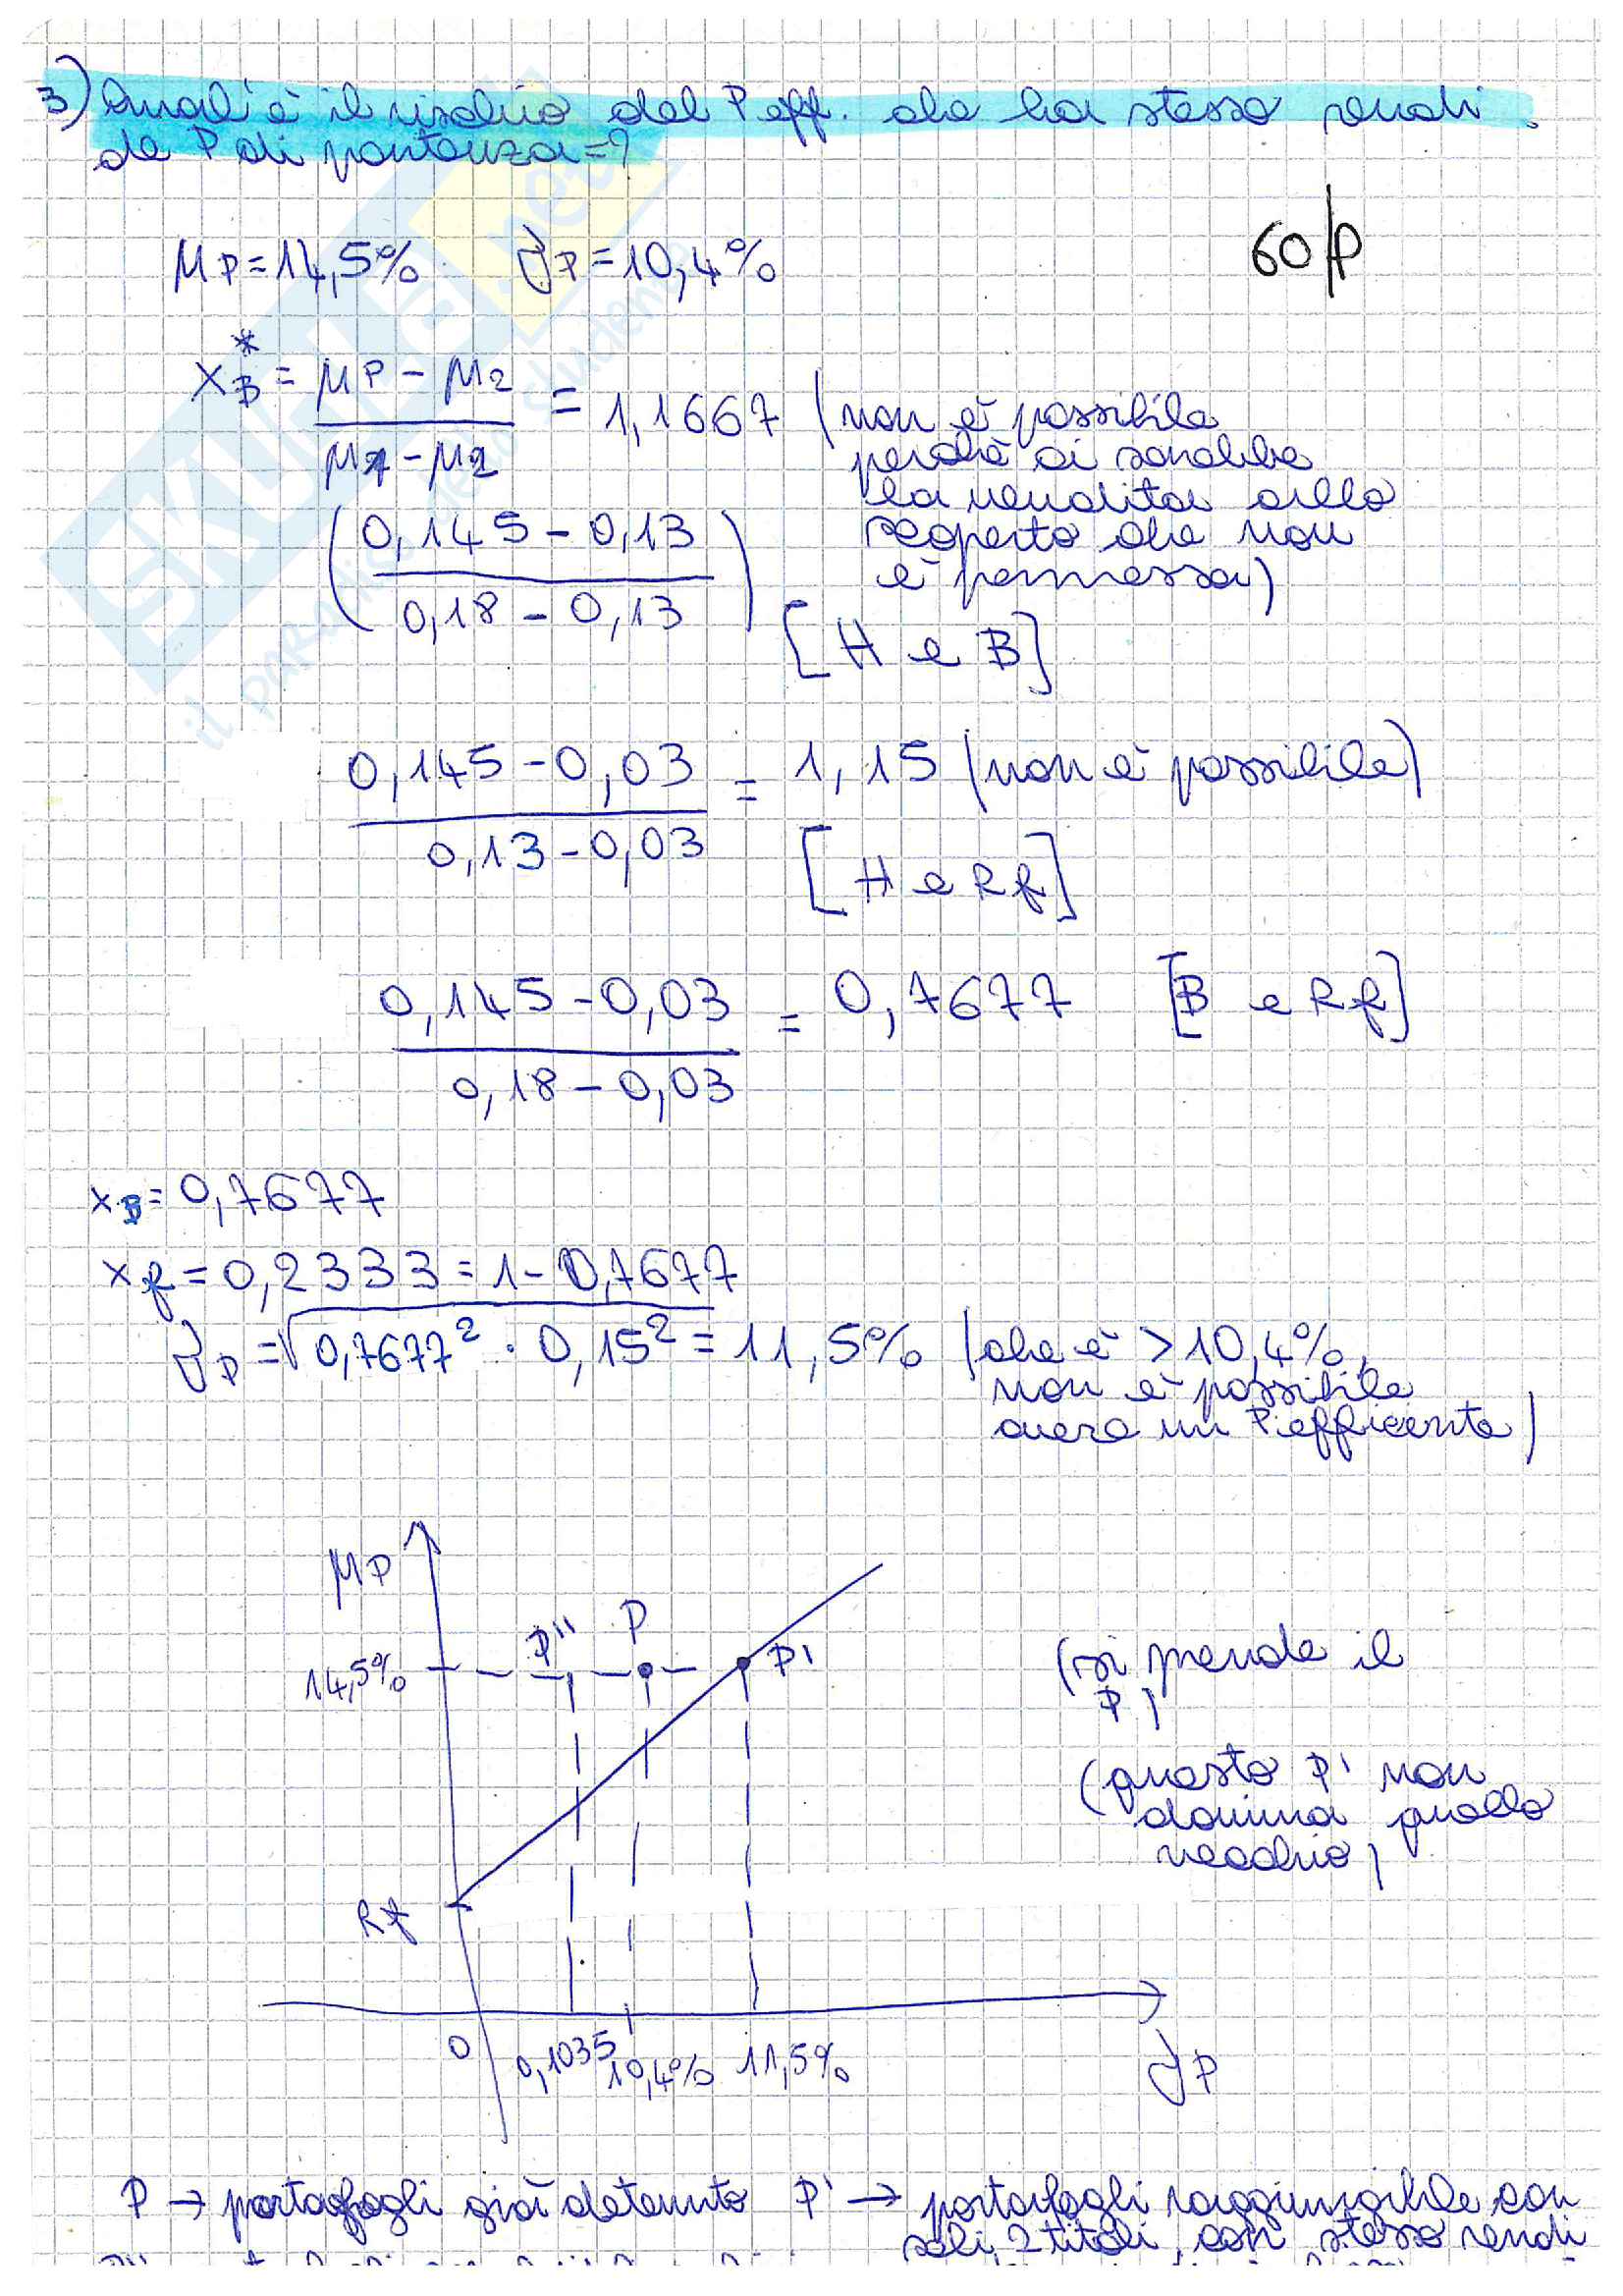 3) Qual'è il rischio del P eff. che ha stesso rendi
de P di partenza=?
60/P
μP=14,5% σP=10,4%
xB* = μP - μ2 / μ1 - μ2 = 1,1667 (non è possibile
perchè ci sarebbe
la vendita allo
scoperto che non
è permessa)
(0,145 - 0,13 / 0,18 - 0,13)
[H e B]
0,145 - 0,03 / 0,13 - 0,03 = 1,15 (non è possibile)
[H e Rf]
0,145 - 0,03 / 0,18 - 0,03 = 0,7677 [B e Rf]
xB = 0,7677
xf = 0,2333 = 1 - 0,7677
σP = √0,7677² · 0,15² = 11,5% (che è > 10,4%,
non è possibile
avere un P efficente)
μP
P'' P
14,5% P'
(si prende il
P')
(questo P' non
domina quello
vecchio)
Rf
0 0,1035 10,4% 11,5%
σP
P → portafogli già detenuto P' → portafogli raggiungibile con
soli 2 titoli, con stesso rendi
il PARadiso dello studente